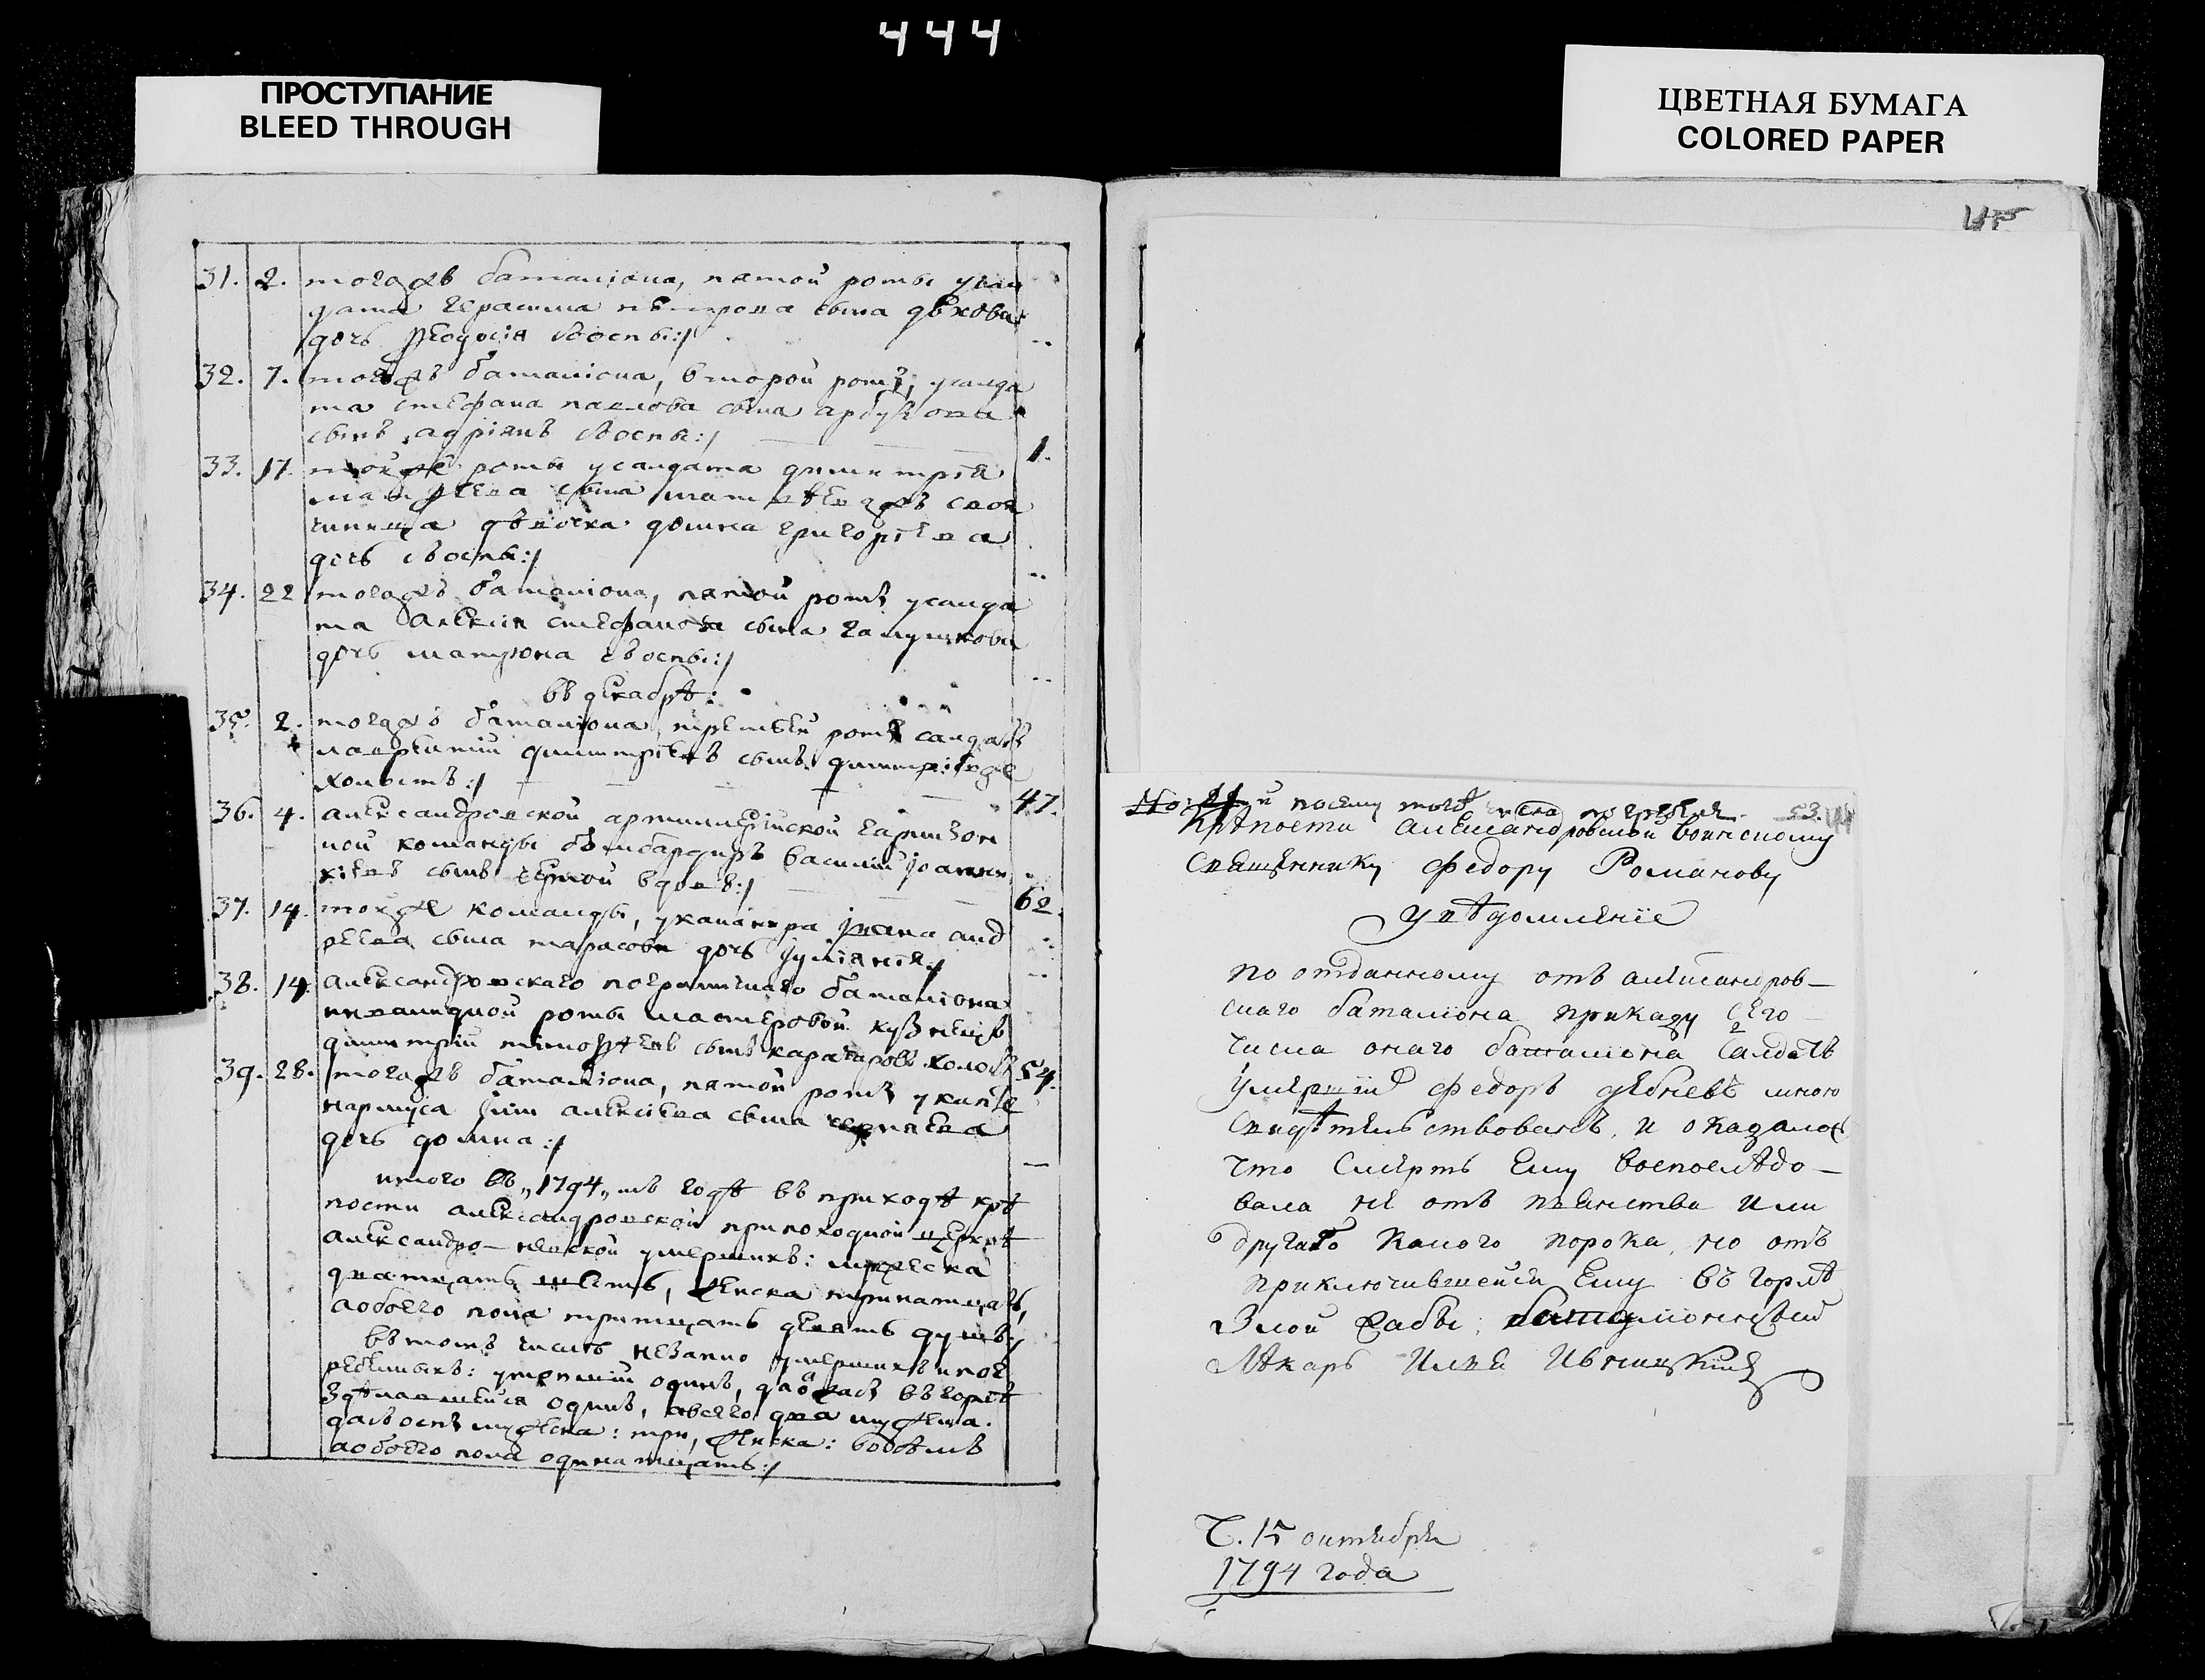 444
ПРОСТУПАНИЕ
BLEED THROUGH
ЦВЕТНАЯ БУМАГА
COLORED PAPER
31. 2. тогожъ баталiона, пятой роты усал
дата герасима петрова сына дѣхова
дочь феодосiя своспы:/ --
32. 7. тогожъ баталiона, второй ротъ, усалда
та стефана павлова сына арбузова
сынъ адрiянъ своспы:/ 1.
33. 17 тойже роты усалдата димитрiя
сына своя
дѣвочка домна григорiева
дочь своспы:/ --
34. 22 тогожъ баталiона, пятой ротъ усалда
та алексiя стефанова сына галушкова
дочь матрона своспы:/ --
въ декабрѣ:
35. 2. тогожъ баталiона, третьей ротъ салдатъ
лаврентий димитрiевъ сынъ
холостъ:/ 47.
36. 4. александровской артиллерiйской гарнизон
ной команды бомбардиръ василий
сынъ вдовъ:/ 62.
37. 14. тойже команды, уканонера iвана анд
реева сына тарасова дочь iулiянiя:/ --
38. 14. александровскаго пограничнаго баталiона
инвалидной роты мастеровой кузнецъ
димитрий тимофѣевъ сынъ каратаровъ холостъ 54.
39. 28. тогожъ баталiона, пятой ротъ укапте
нармуса алексiева сына
дочь домна:/ —
итого въ „1794„ мъ годѣ въ приходѣ крѣ
пости александровской припоходной церквѣ
александро-невской умершихъ: мужеска
дватцать шесть, женска тринатцать,
аобоего пола тритцать девять душъ:/
втомъ числѣ незапно умершихъ ипог
ребенныхъ: умерший одинъ, въгорлѣ
здѣлавшейся одинъ, авсего два мужеска.
даъоспъ мужеска: три, женска: восѣмъ
аобоего пола одинатцать:/
и посему того числа погребенъ. 53.
Крѣпости Александровской воинскому
Священнику Федору Романову
Увѣдомленiе
по отданному отъ александров-
скаго баталiона приказу сего
числа онаго баталiона Салдатъ
умершiй Федоръ дебневъ мною
Свидѣтельствованъ, и оказалось
что Смерть Ему воспослѣдо-
вала не отъ пьянства или
другаго какого порока, но отъ
приключившейся Ему въ горлѣ
Злой Жабы: баталiонный
Лѣкарь Илья
Ч. 15 октября
1794 года